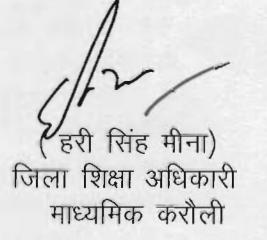 ( हरी सिंह मीना)
जिला शिक्षा अधिकारी
माध्यमिक करौली